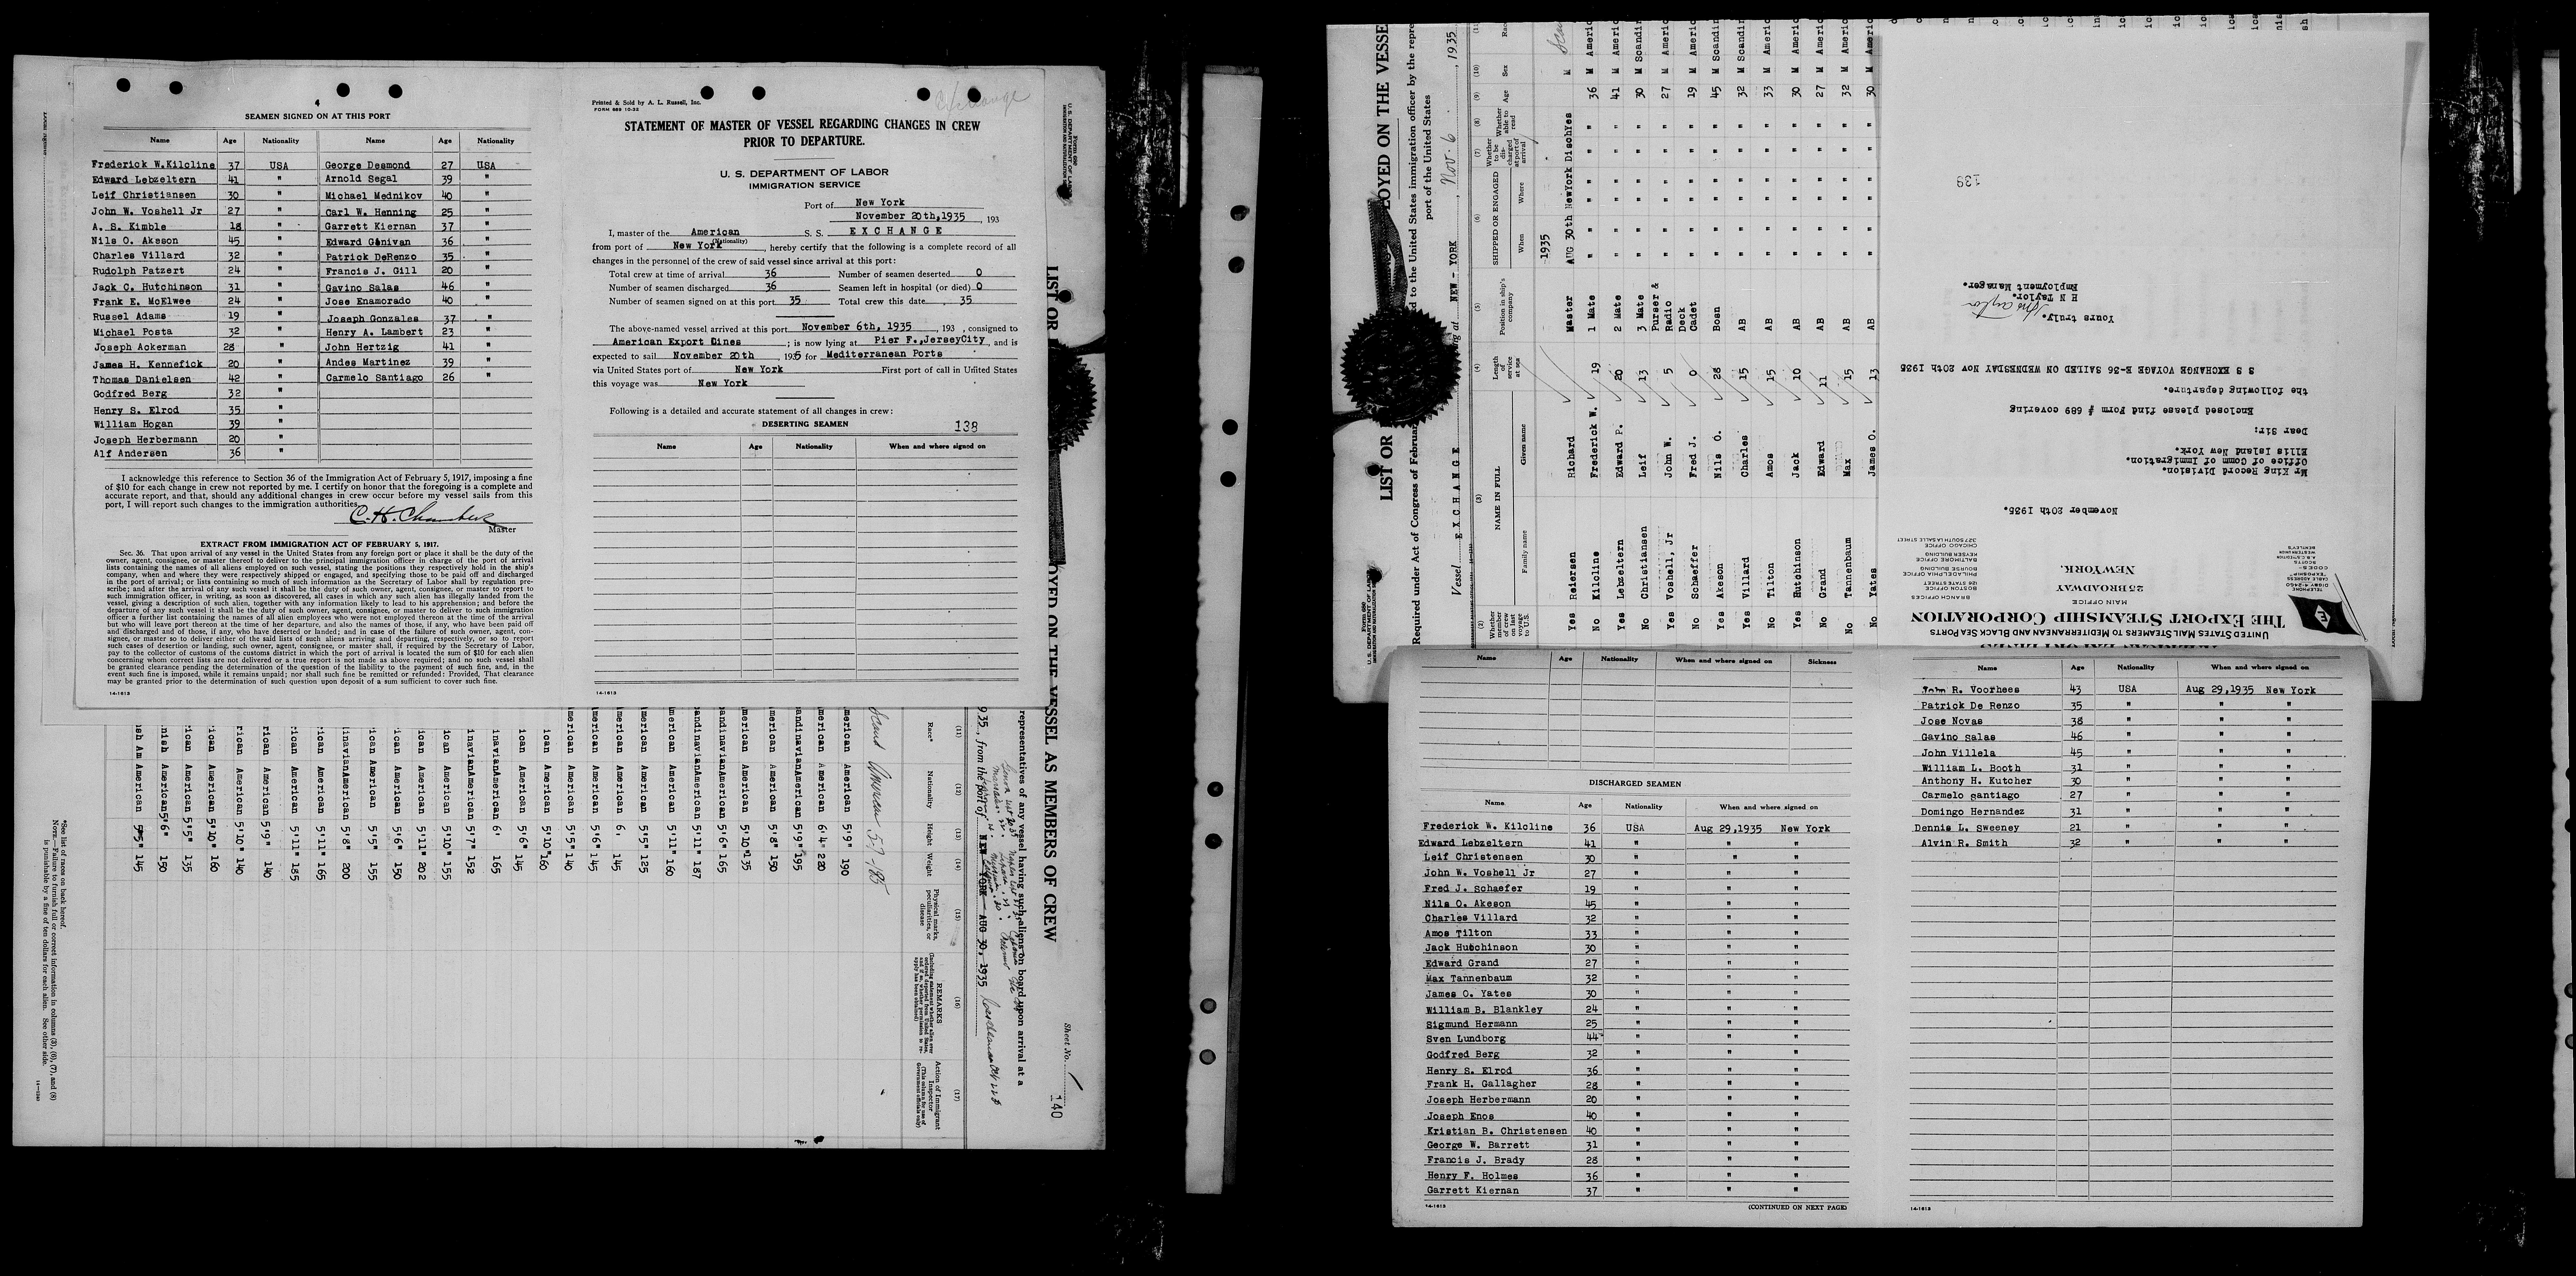 4
SEAMEN SIGNED ON AT THIS PORT
Name Age Nationality Name Age Nationality
Frederick W.Kilcline 37 USA George Desmond 27 USA
Edward Lebzeltern 41 " Arnold Segal 39 "
Leif Christiansen 30 " Michael Mednikov 40 "
John W. Voshell Jr 27 " Carl W. Henning 25 "
A. S. Kimble 18 " Garrett Kiernan 37 "
Nils O. Akeson 45 " Edward Ganivan 36 "
Charles Villard 32 " Patrick DeRenzo 35 "
Rudolph Patzert 24 " Francis J. Gill 20 "
Jack C. Hutchinson 31 " Gavino Salas 46 "
Frank E. McElwee 24 " Jose Enamorado 40 "
Russel Adams 19 " Joseph Gonzales 37 "
Michael Posta 32 " Henry A. Lambert 23 "
Joseph Ackerman 28 " John Hertzig 41 "
James H. Kennefick 20 " Andes Martinez 39 "
Thomas Danielsen 42 " Carmelo Santiago 26 "
Godfred Berg 32 "
Henry S. Elrod 35 "
William Hogan 39 "
Joseph Herbermann 20 "
Alf Andersen 36 "
I acknowledge this reference to Section 36 of the Immigration Act of February 5, 1917, imposing a fine
of $10 for each change in crew not reported by me. I certify on honor that the foregoing is a complete and
accurate report, and that, should any additional changes in crew occur before my vessel sails from this
port, I will report such changes to the immigration authorities.
Master
EXTRACT FROM IMMIGRATION ACT OF FEBRUARY 5, 1917.
Sec. 36. That upon arrival of any vessel in the United States from any foreign port or place it shall be the duty of the
owner, agent, consignee, or master thereof to deliver to the principal immigration officer in charge of the port of arrival
lists containing the names of all aliens employed on such vessel, stating the positions they respectively hold in the ship's
company, when and where they were respectively shipped or engaged, and specifying those to be paid off and discharged
in the port of arrival; or lists containing so much of such information as the Secretary of Labor shall by regulation pre-
scribe; and after the arrival of any such vessel it shall be the duty of such owner, agent, consignee, or master to report to
such immigration officer, in writing, as soon as discovered, all cases in which any such alien has illegally landed from the
vessel, giving a description of such alien, together with any information likely to lead to his apprehension; and before the
departure of any such vessel it shall be the duty of such owner, agent, consignee, or master to deliver to such immigration
officer a further list containing the names of all alien employees who were not employed thereon at the time of the arrival
but who will leave port thereon at the time of her departure, and also the names of those, if any, who have been paid off
and discharged and of those, if any, who have deserted or landed; and in case of the failure of such owner, agent, con-
signee, or master so to deliver either of the said lists of such aliens arriving and departing, respectively, or so to report
such cases of desertion or landing, such owner, agent, consignee, or master shall, if required by the Secretary of Labor,
pay to the collector of customs of the customs district in which the port of arrival is located the sum of $10 for each alien
concerning whom correct lists are not delivered or a true report is not made as above required; and no such vessel shall
be granted clearance pending the determination of the question of the liability to the payment of such fine, and, in the
event such fine is imposed, while it remains unpaid; nor shall such fine be remitted or refunded: Provided, That clearance
may be granted prior to the determination of such question upon deposit of a sum sufficient to cover such fine.
14-1613
Printed & Sold by A. L. Russell, Inc.
FORM 689 10-32
Exchange
STATEMENT OF MASTER OF VESSEL REGARDING CHANGES IN CREW
PRIOR TO DEPARTURE.
U. S. DEPARTMENT OF LABOR
IMMIGRATION SERVICE
Port of New York
November 20th,1935 , 193
I, master of the American S. S. EXCHANGE
(Nationality)
from port of New York , hereby certify that the following is a complete record of all
changes in the personnel of the crew of said vessel since arrival at this port:
Total crew at time of arrival 36 Number of seamen deserted 0
Number of seamen discharged 36 Seamen left in hospital (or died) 0
Number of seamen signed on at this port 35 Total crew this date 35
The above-named vessel arrived at this port November 6th, 1935 , 193 , consigned to
American Export Lines ; is now lying at Pier F.,JerseyCity , and is
expected to sail November 20th , 1935 for Mediterranean Ports
via United States port of New York First port of call in United States
this voyage was New York
Following is a detailed and accurate statement of all changes in crew:
DESERTING SEAMEN 138
Name Age Nationality When and where signed on
14-1613
VESSEL AS MEMBERS OF CREW
Sheet No. 1
140
representatives of any vessel having such aliens on board upon arrival at a
1935, from the port of NEW YORK AUG 30, 1935
(11) (12) (13) (14) (15) (16) (17)
Race* Nationality Height Weight Physical marks, peculiarities, or disease
REMARKS
Action of Immigrant Inspector
Scand American 5-7 - 185
American 5'9" 190
American 6'4" 220
American 5'9" 195
American 5'8" 150
American 5'10" 135
American 5'6" 165
American 5'11" 187
American 5'11" 160
American 5'5" 125
American 6' 145
American 5'6" 145
American 5'5" 140
American 5'10" 160
American 5'6" 145
American 6' 165
American 5'7" 152
American 5'10" 155
American 5'11" 202
American 5'6" 150
American 5'5" 155
American 5'8" 200
American 5'11" 165
American 5'11" 185
American 5'9" 140
American 5'10" 140
American 5'10" 160
American 5'5" 135
American 5'6" 150
American 5'5" 145
*See list of races on back hereof.
NOTE.—Failure to furnish full or correct information in columns (3), (6), (7), and (8)
is punishable by a fine of ten dollars for each alien. See other side.
Form 680
U. S. DEPARTMENT OF LABOR
LIST OR
LOYED ON THE VESSE
Required under Act of Congress of February
to the United States immigration officer by the repre
port of the United States
Vessel EXCHANGE
at NEW - YORK , Nov. 6 , 1935
(2) (3) (4) (5) (6) (7) (8) (9) (10) (11)
Whether member of crew on last voyage to U.S.
NAME IN FULL
Family name Given name
Length of service at sea
Position in ship's company
SHIPPED OR ENGAGED
When Where
Whether to be discharged at port of arrival
Whether able to read
Age Sex
1935
Yes Reiersen Richard Master AUG 30th NewYork DischYes M
No Kilcline Frederick W. 19 1 Mate " " " " 36 M Americ
Yes Lebzeltern Edward P. 20 2 Mate " " " " 41 M Americ
No Christiansen Leif 13 3 Mate " " " " 30 M Scandin
Yes Voshell, Jr John W. 5 Purser & Radio " " " " 27 M Americ
No Schaeffer Fred J. 0 Deck Cadet " " " " 19 M Americ
Yes Akeson Nils O. 28 Bosn " " " " 45 M Scandin
Yes Villard Charles 15 AB " " " " 32 M Scandin
No Tilton Amos 15 AB " " " " 33 M Americ
Yes Hutchinson Jack 10 AB " " " " 30 M Americ
No Grand Edward 11 AB " " " " 27 M Americ
No Tannenbaum Max 15 AB " " " " 32 M Americ
No Yates James O. 13 AB " " " " 30 M Americ
UNITED STATES MAIL STEAMERS TO MEDITERRANEAN AND BLACK SEA PORTS
THE EXPORT STEAMSHIP CORPORATION
MAIN OFFICE
25 BROADWAY
NEW YORK.
TELEPHONE
DIGBY 4-2460
BRANCH OFFICES
BOSTON OFFICE
126 STATE STREET
PHILADELPHIA OFFICE
BOURSE BUILDING
BALTIMORE OFFICE
KEYSER BUILDING
CHICAGO OFFICE
327 SOUTH LA SALLE STREET
November 20th 1935.
Mr King Record Division.
Office of Comm of Immigration.
Ellis Island New York.
Dear Sir:
Enclosed please find Form # 689 covering
the following departure.
S S EXCHANGE VOYAGE E-36 SAILED ON WEDNESDAY NOV 20th 1935
Yours truly.
H N Taylor.
Employment Manager.
139
Name Age Nationality When and where signed on Sickness
DISCHARGED SEAMEN
Name Age Nationality When and where signed on
Frederick W. Kilcline 36 USA Aug 29,1935 New York
Edward Lebzeltern 41 " " "
Leif Christensen 30 " " "
John W. Voshell Jr 27 " " "
Fred J. Schaefer 19 " " "
Nils O. Akeson 45 " " "
Charles Villard 32 " " "
Amos Tilton 33 " " "
Jack Hutchinson 30 " " "
Edward Grand 27 " " "
Max Tannenbaum 32 " " "
James O. Yates 30 " " "
William B. Blankley 24 " " "
Sigmund Hermann 25 " " "
Sven Lundborg 44 " " "
Godfred Berg 32 " " "
Henry S. Elrod 36 " " "
Frank H. Gallagher 28 " " "
Joseph Herbermann 20 " " "
Joseph Enos 40 " " "
Kristian B. Christensen 40 " " "
George W. Barrett 31 " " "
Francis J. Brady 28 " " "
Henry F. Holmes 36 " " "
Garrett Kiernan 37 " " "
14-1613 (CONTINUED ON NEXT PAGE)
Name Age Nationality When and where signed on
John R. Voorhees 43 USA Aug 29,1935 New York
Patrick De Renzo 35 " " "
Jose Novas 38 " " "
Gavino Salas 46 " " "
John Villela 45 " " "
William L. Booth 31 " " "
Anthony H. Kutcher 30 " " "
Carmelo Santiago 27 " " "
Domingo Hernandez 31 " " "
Dennis L. Sweeney 21 " " "
Alvin R. Smith 32 " " "
14-1613